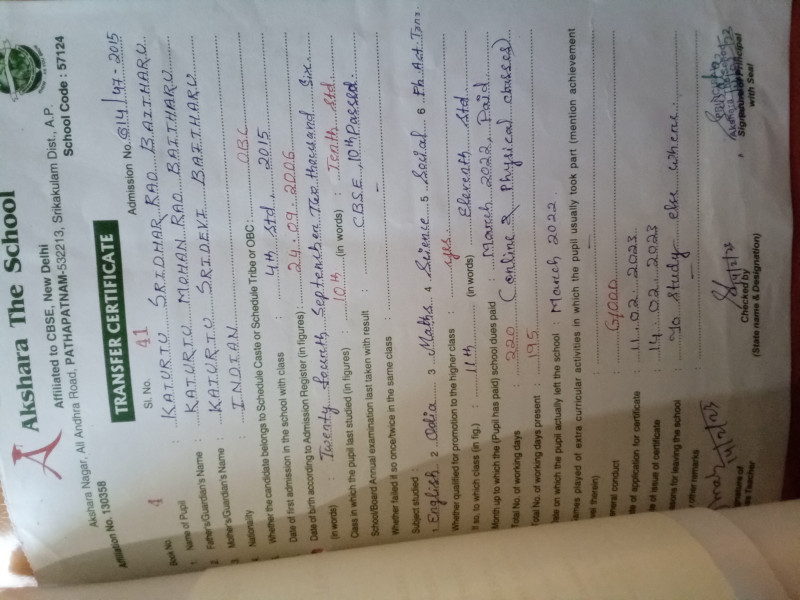 Akshara The School
Affiliated to CBSE, New Delhi
Akshara Nagar, All Andhra Road, PATHAPATNAM-532213, Srikakulam Dist., A.P.
Affilation No. 130358 School Code : 57124
TRANSFER CERTIFICATE
Book No. 1 Sl. No. 41 Admission No. 614/97-2015
1 Name of Pupil : KATURTU SRIDHAR RAO BAITHARU
2 Father's/Guardian's Name : KATURTU MOHAN RAO BAITHARU
3 Mother's/Guardian's Name : KATURTU SRIDEVI BAITHARU
4 Nationality : INDIAN
Whether the candidate belongs to Schedule Caste or Schedule Tribe or OBC : OBC
Date of first admission in the school with class : 4th Std, 2015
Date of birth according to Admission Register (in figures) : 24-09-2006
(in words) : Twenty fourth September Two thousand Six
Class in which the pupil last studied (in figures) : 10th (in words) : Tenth Std
School/Board Annual examination last taken with result : CBSE, 10th Passed.
Whether failed if so once/twice in the same class : -
Subject studied :
1 English 2 Odia 3 Maths 4 Science 5 Social 6 Ph. Act. Trnr
Whether qualified for promotion to the higher class : yes
if so, to which class (in fig.) : 11th (in words) Eleventh Std
Month up to which the (Pupil has paid) school dues paid : March 2022, Paid
Total No. of working days : 220 (online & Physical classes)
Total No. of working days present : 195
Date on which the pupil actually left the school : March 2022
ames played of extra curricular activities in which the pupil usually took part (mention achievement
vel therein) : -
eneral conduct : GOOD
te of application for certificate : 11.02.2023
te of issue of certificate : 14.02.2023
sons for leaving the school : To Study else where.
other remarks : -
Teacher
Checked by
(State name & Designation)
Signature of Principal
with Seal